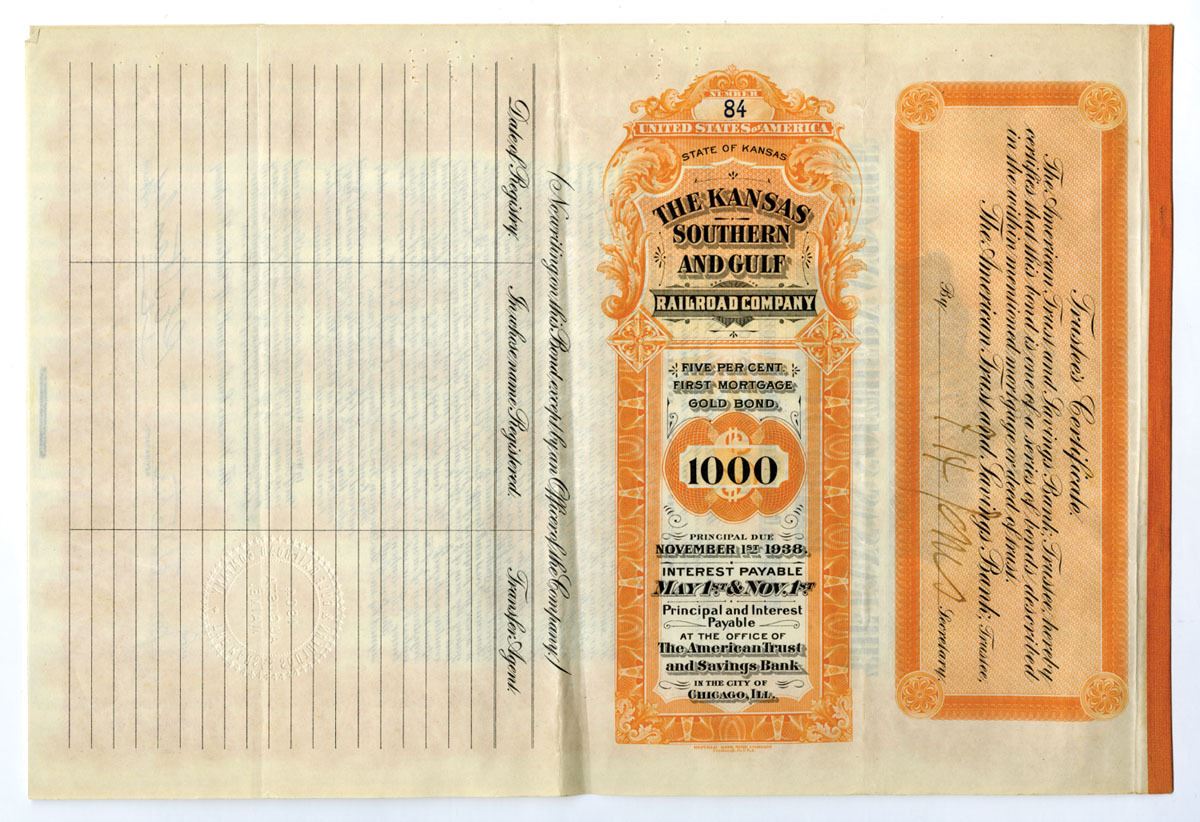 Date of Registry.
In whose name Registered.
Transfer Agent.
(No writing on this Bond except by an Officer of the Company.)
NUMBER
84
UNITED STATES OF AMERICA
STATE OF KANSAS
THE KANSAS
SOUTHERN
AND GULF
RAILROAD COMPANY
FIVE PER CENT.
FIRST MORTGAGE
GOLD BOND.
1000
PRINCIPAL DUE
NOVEMBER 1ST 1938.
INTEREST PAYABLE
MAY 1ST & NOV. 1ST
Principal and Interest
Payable
AT THE OFFICE OF
The American Trust
and Savings Bank
IN THE CITY OF
CHICAGO, ILL.
Trustee's Certificate.
The American Trust and Savings Bank, Trustee, hereby
certifies that this bond is one of a series of bonds described
in the within mentioned mortgage or deed of trust.
The American Trust and Savings Bank, Trustee,
By
Secretary.